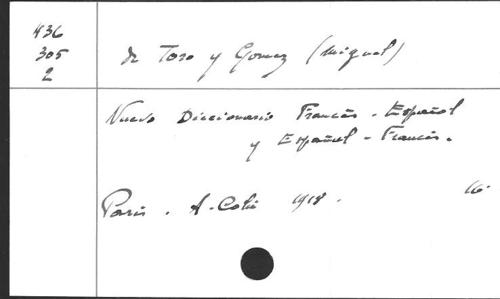 436
305
2
de Toro y Gomez (Miguel)
Nuevo Diccionario Francés - Español
y Español - Francés.
Paris. A. Colin 1918. 16.